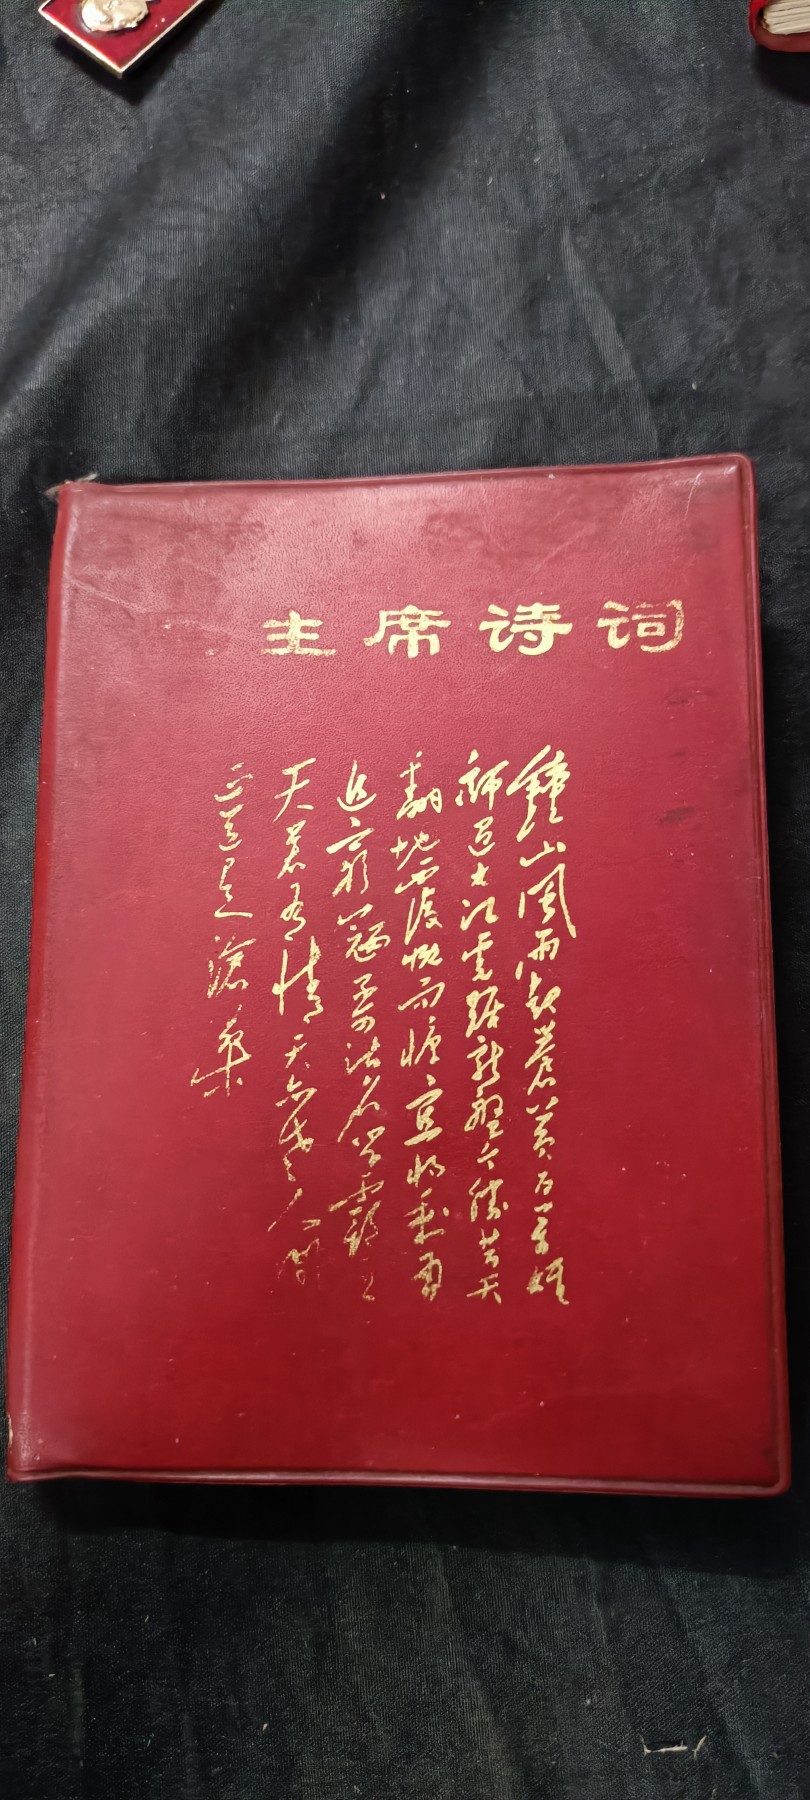 主席诗词
鐘山風雨起蒼黄百萬雄
师过大江虎踞龙盘今勝昔天
翻地覆慨而慷宜将剩勇
追穷寇不可沽名学霸王
天若有情天亦老人间
正道是滄桑